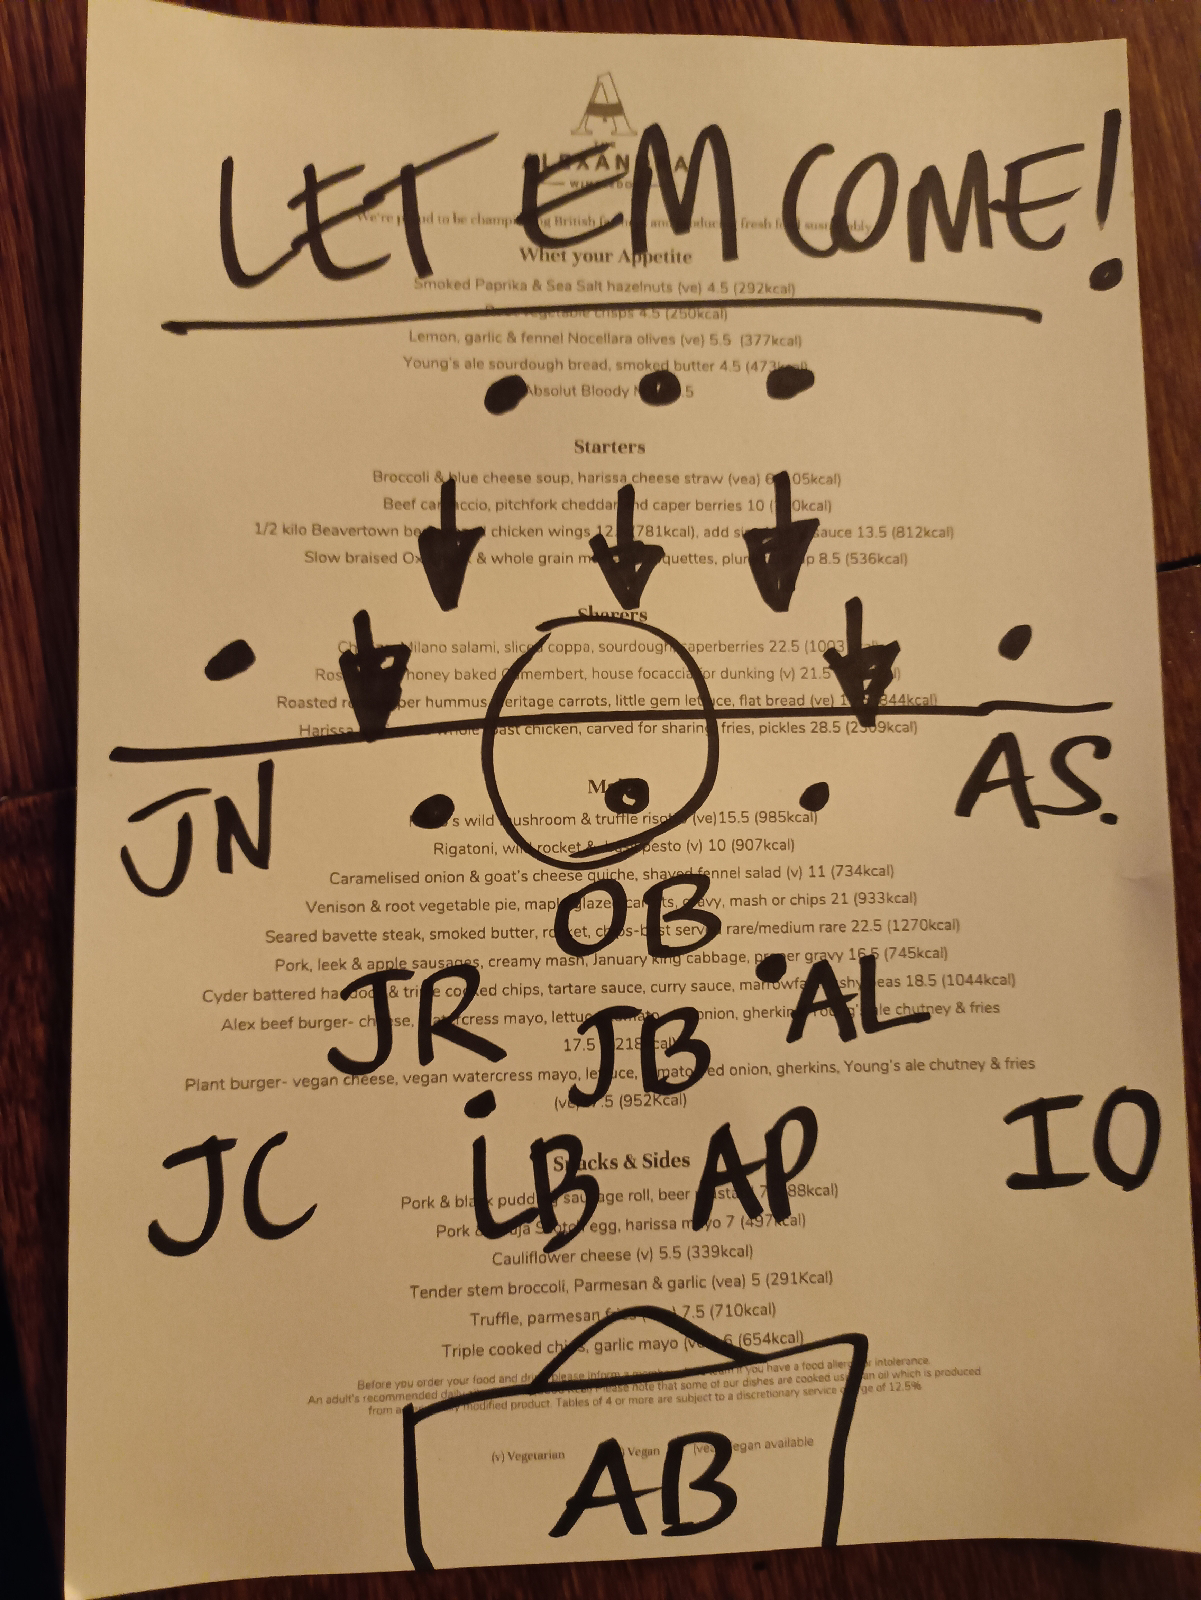 LET EM COME!
We're to be British and fresh
Whet your Appetite
Smoked Paprika & Sea Salt hazelnuts (ve) 4.5 (292kcal)
vegetable crisps 4.5 (250kcal)
Lemon, garlic & fennel Nocellara olives (ve) 5.5 (377kcal)
Young's ale sourdough bread, smoked butter 4.5
Absolut Bloody
Starters
Broccoli & blue cheese soup, harissa cheese straw (vea)
Beef pitchfork cheddar and caper berries 10
1/2 kilo Beavertown chicken wings (781kcal), add sauce 13.5 (812kcal)
Slow braised & whole grain 8.5 (536kcal)
Sharers
Milano salami, sliced coppa, sourdough, caperberries 22.5
honey baked Camembert, house focaccia for dunking (v) 21.5
Roasted hummus, heritage carrots, little gem lettuce, flat bread (ve)
Harissa roast chicken, carved for sharing, fries, pickles 28.5
JN AS.
Mains
wild mushroom & truffle risotto (ve)15.5 (985kcal)
Rigatoni, wild rocket & pesto (v) 10 (907kcal)
Caramelised onion & goat's cheese quiche, shaved fennel salad (v) 11 (734kcal)
Venison & root vegetable pie, maple glazed carrots, gravy, mash or chips 21 (933kcal)
OB
Seared bavette steak, smoked butter, rocket, chips-best served rare/medium rare 22.5 (1270kcal)
Pork, leek & apple sausages, creamy mash, January king cabbage, proper gravy 16.5 (745kcal)
Cyder battered haddock & triple cooked chips, tartare sauce, curry sauce, marrowfat mushy peas 18.5 (1044kcal)
JR JB AL
Alex beef burger- cheese, watercress mayo, lettuce, tomato, onion, gherkin, Young's ale chutney & fries
17.5
Plant burger- vegan cheese, vegan watercress mayo, lettuce, tomato, red onion, gherkins, Young's ale chutney & fries
(952Kcal)
JC LB AP IO
Snacks & Sides
Pork & black pudding sausage roll, beer mustard
Pork egg, harissa mayo 7 (497kcal)
Cauliflower cheese (v) 5.5 (339kcal)
Tender stem broccoli, Parmesan & garlic (vea) 5 (291Kcal)
Truffle, parmesan fries 7.5 (710kcal)
Triple cooked chips, garlic mayo 6 (654kcal)
Before you order your food and drink please inform a member if you have a food allergy or intolerance.
An adult's recommended daily Please note that some of our dishes are cooked using an oil which is produced
from a modified product. Tables of 4 or more are subject to a discretionary service charge of 12.5%
(v) Vegetarian Vegan (vea) vegan available
AB